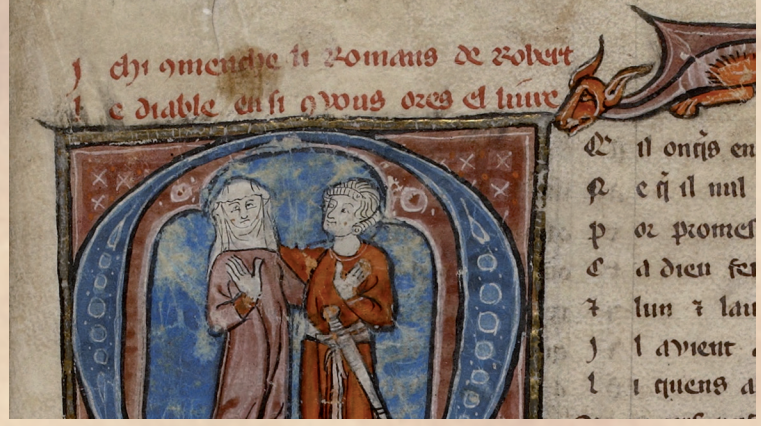 I chi ꝯmenche li Romans de Robert
l e diable ensi ꝯ vous ores el liure
Q il onq̃s en
N e q̃ il nul
p or promes
C a dieu
⁊ lun ⁊ lau
J l avient a
l i quens a